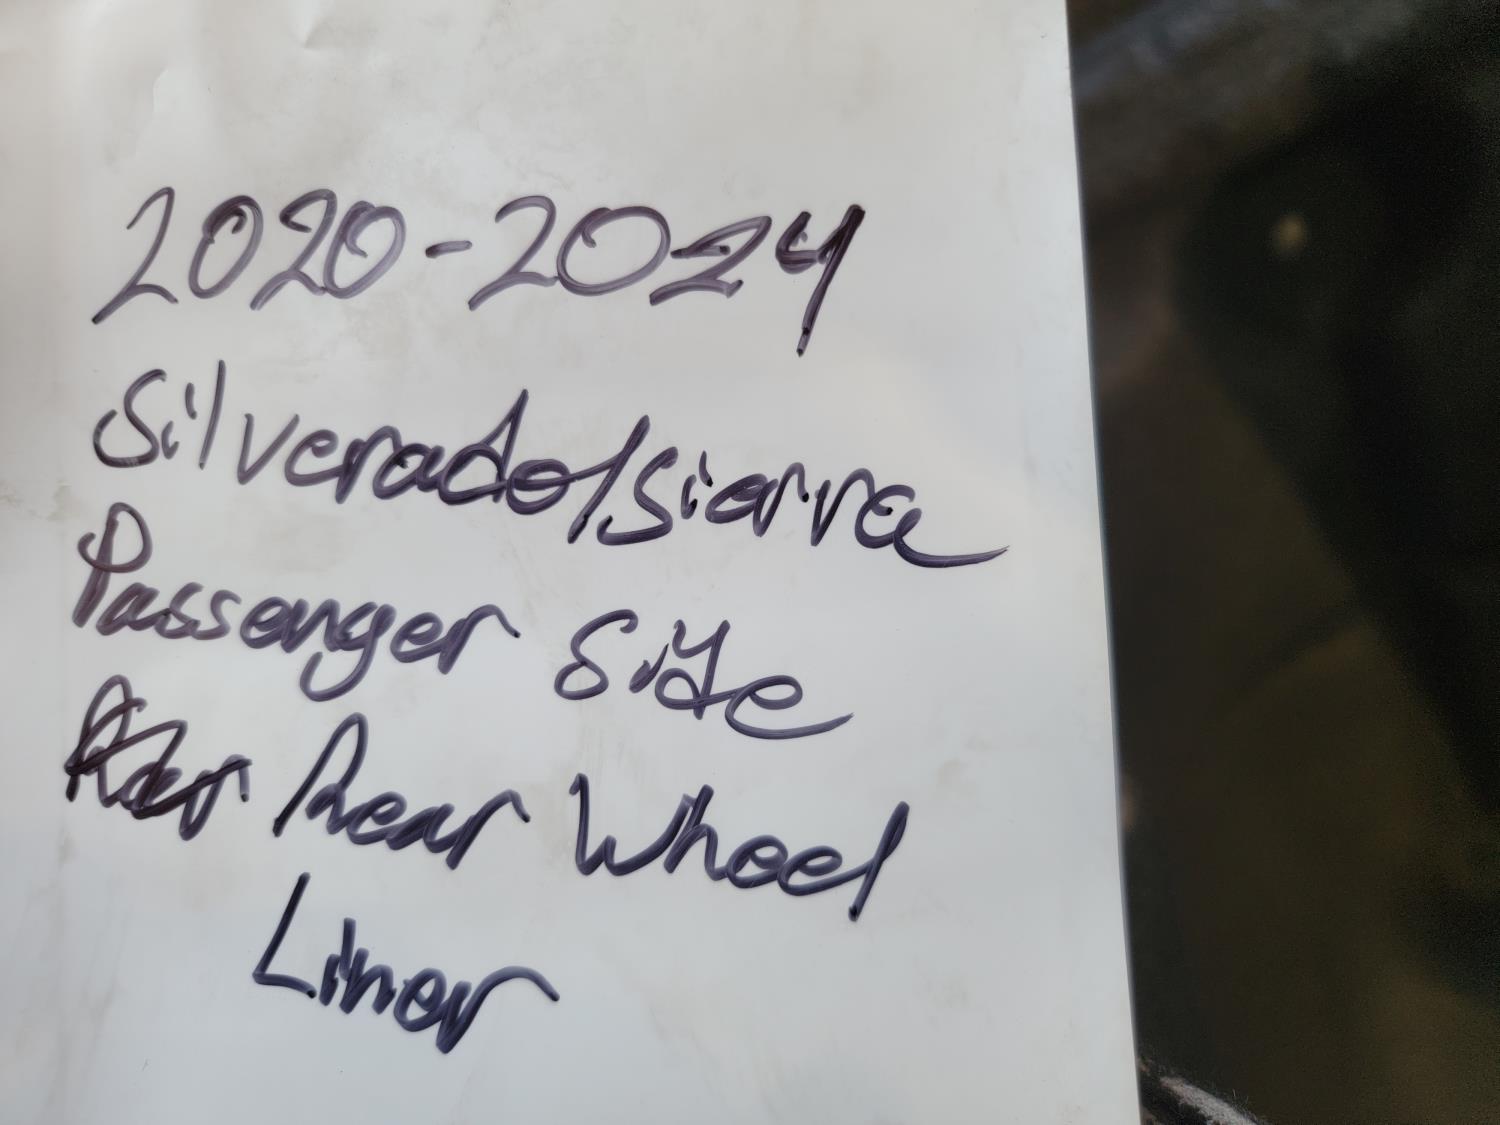 2020-2024
Silverado/sierra
Passenger Side
Rear Wheel
Liner